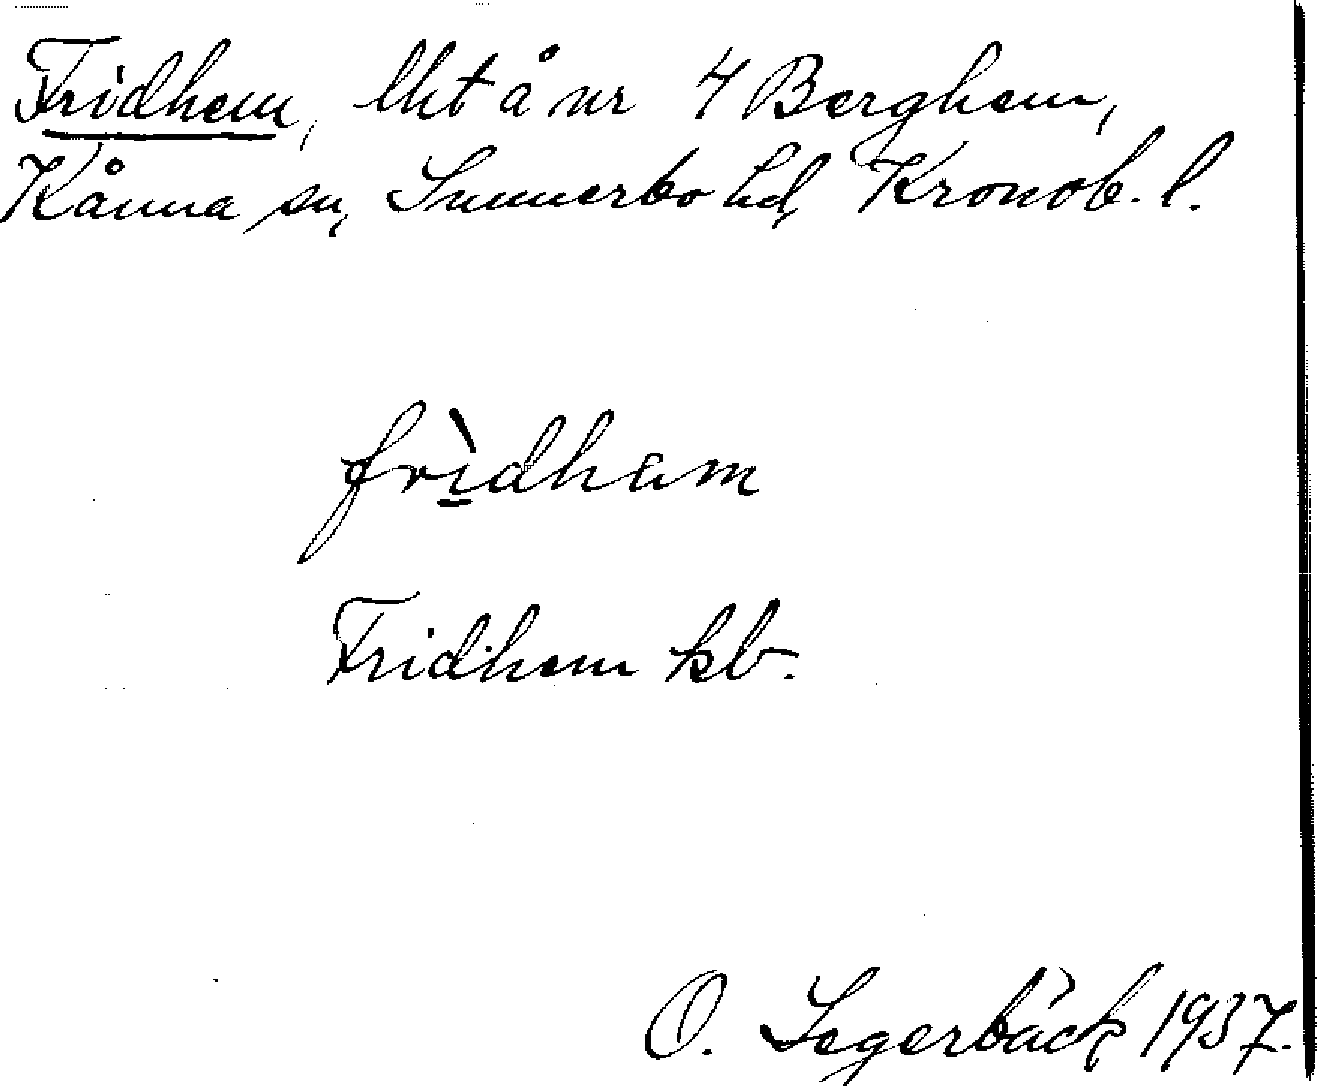 Fridhem, lht å nr 4 Berghem,
Kånna sn, Sunnerbo hd, Kronob. l.
frìdhem
Fridhem kb.
O. Segerbäck 1937.